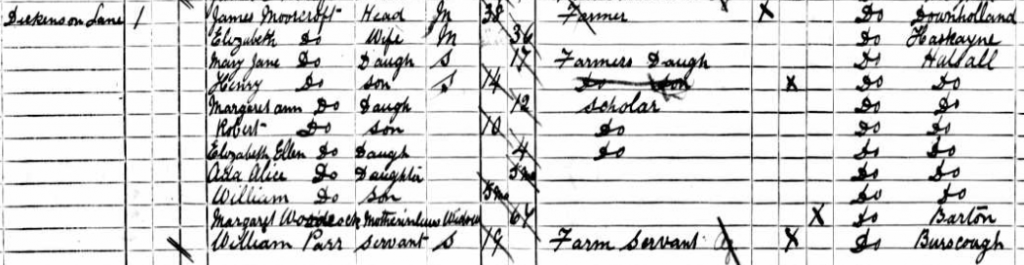 Dickinson Lane 1 James Moorcroft Head M 38 Farmer X Do Downholland
Elizabeth Do Wife M 36 Do Haskayne
Mary Jane Do Daugh S 17 Farmers Daugh Do Halsall
Henry Do Son S 14 Do Son X Do Do
Margaret ann Do Daugh 12 Scholar Do Do
Robert Do Son 10 Do Do Do
Elizabeth Ellen Do Daugh 4 Do Do Do
Ada Alice Do Daughter 5mo Do Do
William Do Son 5mo Do Do
Margaret Woodcock Motherinlaw Widow 64 X Do Barton
William Parr Servant S 19 Farm Servant X Do Burscough